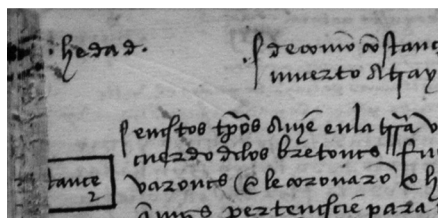 hedad.
de comō cōstanç
muerto a tray
enestos tp̄os auiē enla trr̄a v
cuerdo delos bretones fu
tance
varones e le coronarō e h
pertenisciē para